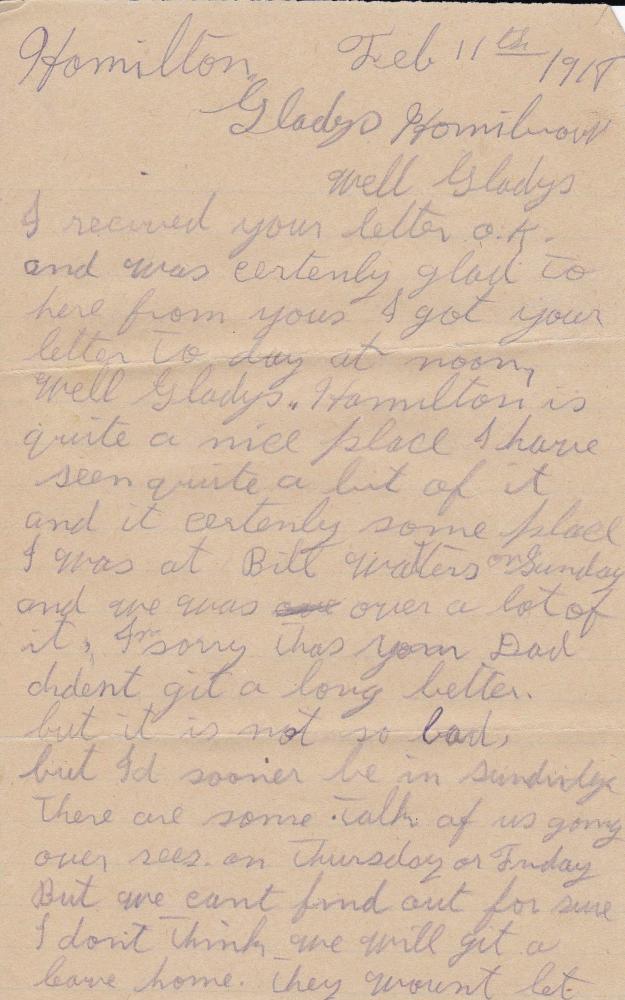 Hamilton, Feb 11th 1918
Gladys
Well Gladys
I recived your letter o.K.
and was certenly glad to
here from yous I got your
letter to day at noon,
Well Gladys. Hamilton is
quite a nice place I have
seen quite a bit of it
and it certenly some place
I was at Bill Watters on Sunday
and we was over a lot of
it, I'm sorry thas your Dad
dident git a long better.
but it is not so bad,
but I'd sooner be in Sundridge
There are some talk of us going
over sees. on Thursday or Friday
But we cant find out for sure
I don't think we will git a
leave home. They wount let